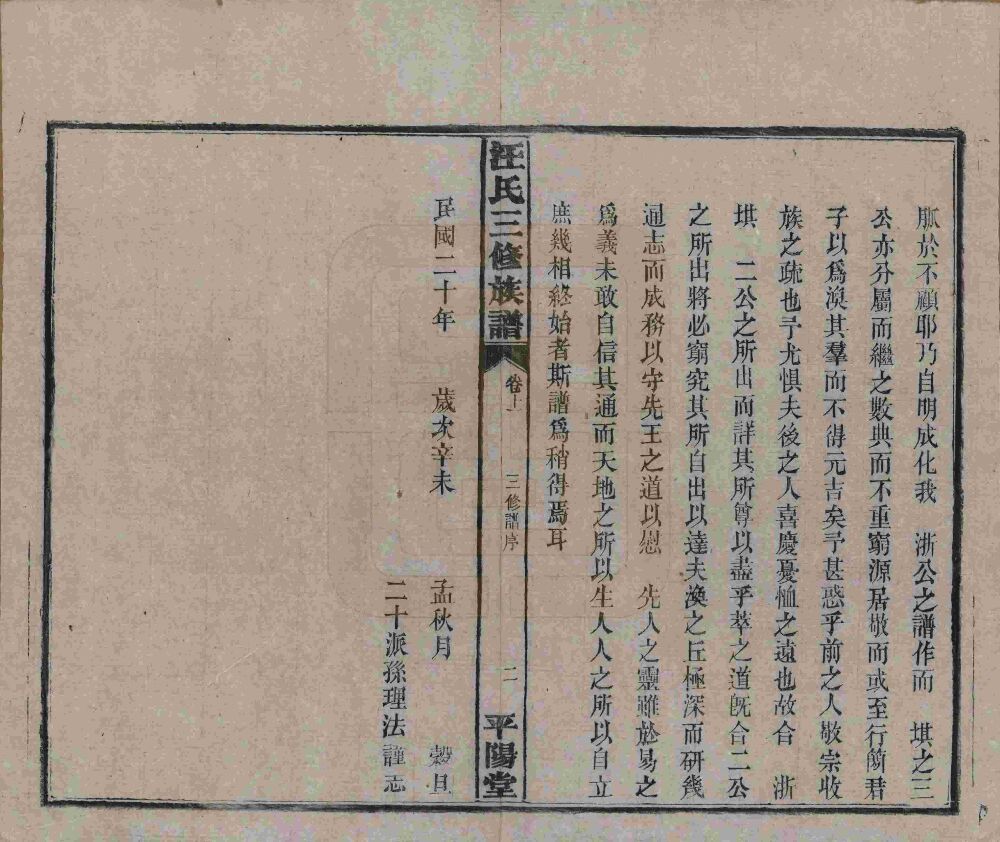 胍於不顧耶乃自明成化我　浙公之譜作而　堪之三
公亦分屬而繼之數典而不重窮源居敬而或至行簡君
子以爲渙其羣而不得元吉矣予甚惑乎前之人敬宗收
族之疏也予尤惧夫後之人喜慶憂恤之遠也故合　浙
堪　二公之所出而詳其所尊以盡乎萃之道既合二公
之所出將必窮究其所自出以達夫渙之丘極深而研幾
通志而成務以守先王之道以慰　先人之靈雖於易之
爲義未敢自信其通而天地之所以生人人之所以自立
庶幾相終始者斯譜爲稍得焉耳
汪氏三修族譜
卷上
三修譜序
二
平陽堂
民國二十年　歲次辛未　孟秋月　穀旦
二十派孫理法　謹志